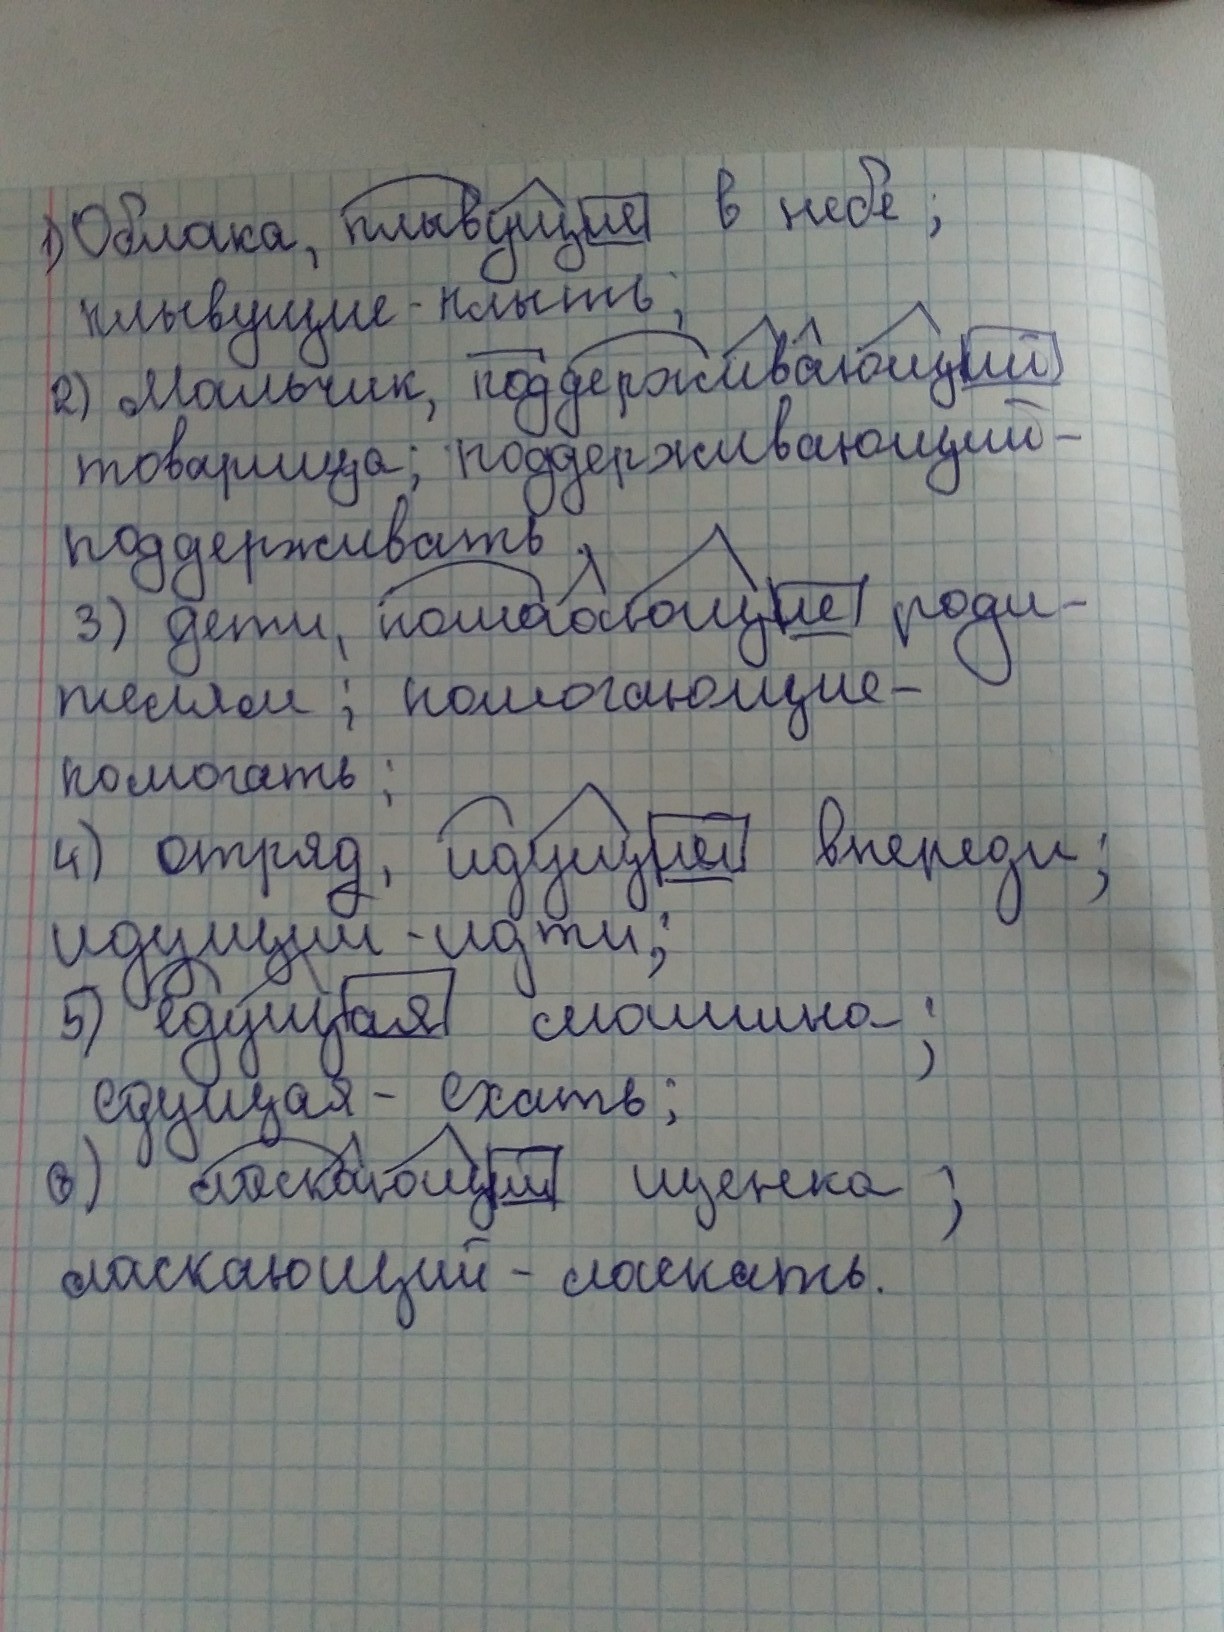 1) Облака, плывущие в небе;
плывущие - плыть;
2) Мальчик, поддерживающий
товарища; поддерживающий -
поддерживать,
3) дети, помогающие роди-
телям; помогающие -
помогать;
4) отряд, идущий впереди;
идущий - идти;
5) едущая машина;
едущая - ехать;
6) ласкающий щенка;
ласкающий - ласкать.